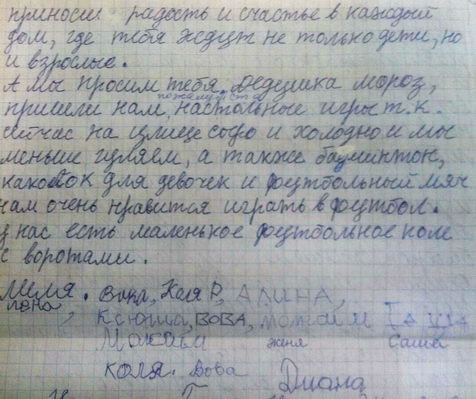 приносиш радость и счастье в каждый
дом, где тебя ждут не только дети, но
и взрослые.
А мы просим тебя, дедушка мороз,
пожалуйста
пришли нам, настольные игры т.к.
сейчас на улице сыро и холодно и мы
меньше гуляем, а также бадминтон,
для девочек и футбольный мяч
нам очень нравится играть в футбол.
У нас есть маленькое футбольное поле
с воротами.
Вика, Коля Р, АЛИНА,
Лена,
Ксюша, ВОВА,
Максим женя Саша
КОЛЯ. Вова Диана